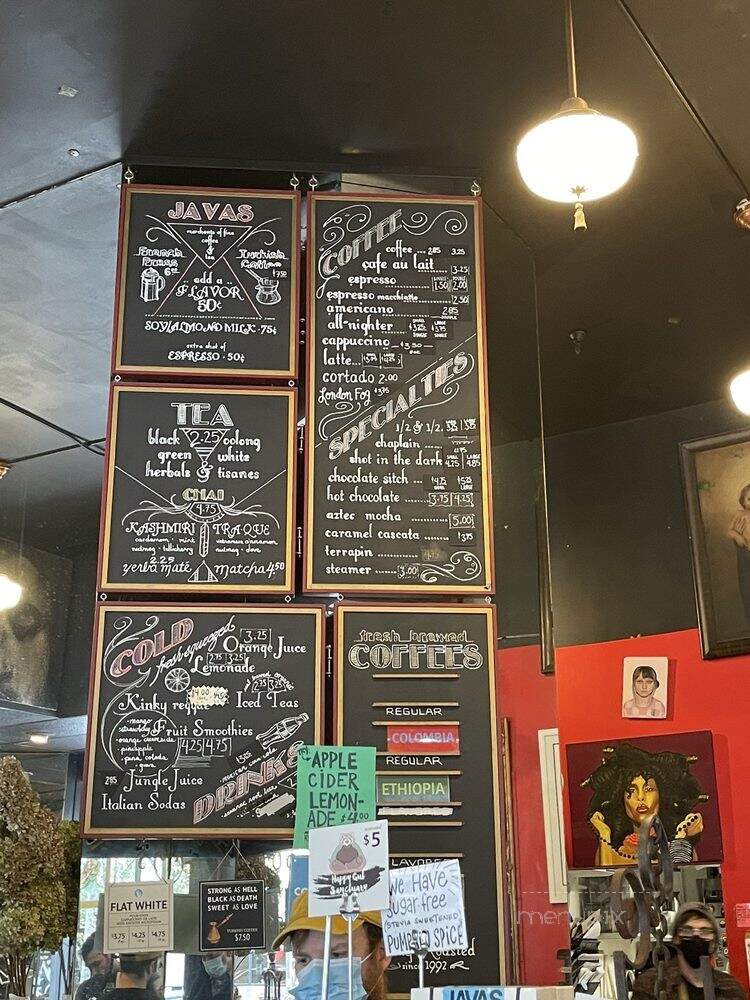 JAVAS
merchants of fine
coffee
&
tea
French
Press
6.00
Turkish
Coffee
$7.50
add a
FLAVOR
50¢
SOY/ALMOND MILK·75¢
extra shot of
ESPRESSO·50¢
TEA
black 2.25 oolong
green & white
herbals & tisanes
CHAI
4.75
KASHMIRI
cardamom · mint
nutmeg · tellicherry
TRA·QUE
vietnamese cinnamon
nutmeg · clove
2.25
yerba maté
matcha 4.50
COFFEE
coffee ... 2.85 3.25
cafe au lait ... 3.25
espresso 1.50 2.00
espresso macchiatto 2.50
americano 2.85
all-nighter
cappuccino $3.50
latte
cortado 2.00
London Fog $3.75
SPECIALTIES
1/2 & 1/2
chaplain
shot in the dark SMALL 4.25 LARGE 4.85
chocolate sitch $4.75 $5.25
hot chocolate 3.75 4.25
aztec mocha 5.00
caramel cascata
terrapin
steamer 3.00
COLD
fresh squeezed
3.25
Orange Juice
2.75 3.25
Lemonade
Kinky reggae
2.75 3.25
Iced Teas
Fruit Smoothies
4.25 4.75
·mango
·strawberry
·orange creamsicle
·pineapple
·pina colada
·guava
2.85 Jungle Juice
Italian Sodas
DRINKS
fresh brewed
COFFEES
REGULAR
·COLOMBIA·
REGULAR
ETHIOPIA
APPLE
CIDER
LEMON-
ADE $4.00
$5
Happy Gut
Sanctuary
We Have
Sugar free
(STEVIA SWEETENED)
PUMPKIN SPICE
roasted
since 1992
FLAT WHITE
$3.75 $4.25 $4.75
STRONG AS HELL
BLACK AS DEATH
SWEET AS LOVE
TURKISH COFFEE
$7.50
JAVAS
menupix